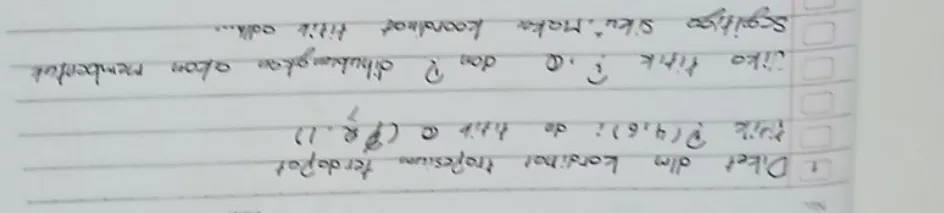 1. Diket dlm kordinat trapesium terdapat
titik P(4,6); do titik Q (7,1)
jika titik P, Q dan R dihubungkan akan membentuk
Segitiga siku". Maka koordinat titik adlh...